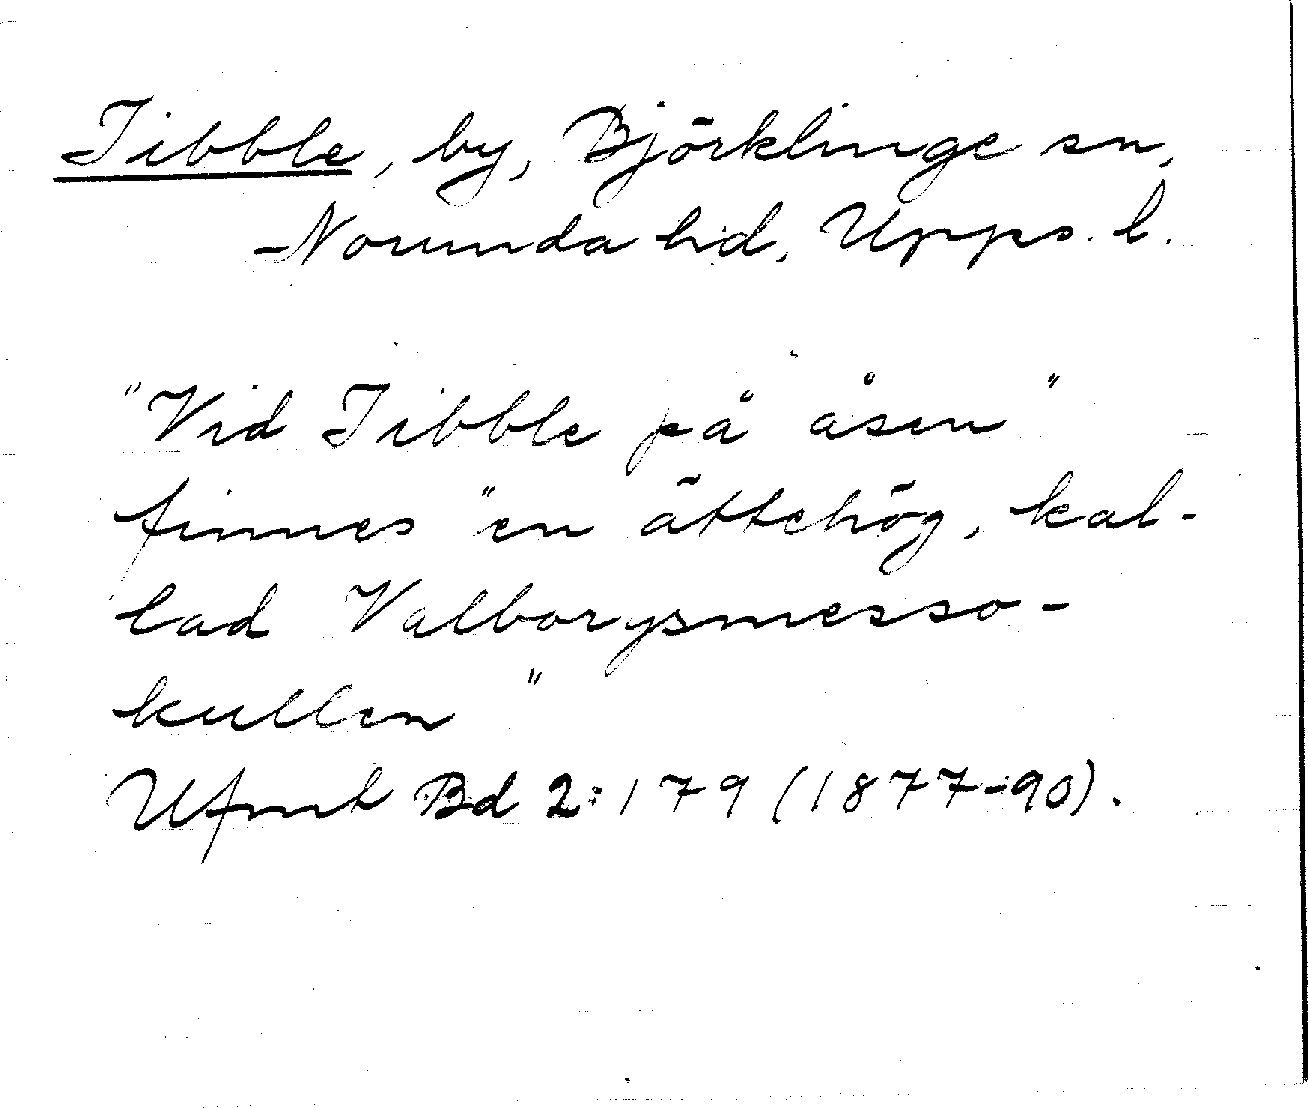 Tibble, by, Björklinge sn,
Norunda hd, Upps. l.
"Vid Tibble på åsen"
finnes "en ättehög, kal-
lad Valborgsmesso-
kullen"
Ufmt Bd 2:179 (1877-90).